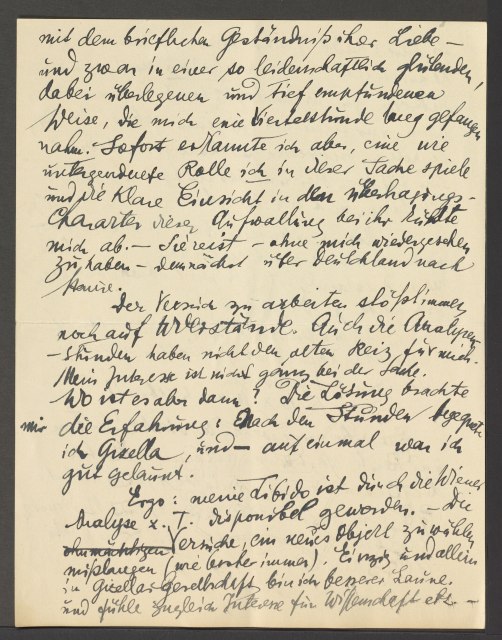 mit dem brieflichen Geständniß ihrer Liebe –
und zwar in einer so leidenschaftlich glühenden,
dabei überlegenen und tief empfundenen
Weise, die mich eine Viertelstunde lang gefangen
nahm. Sofort erkannte ich aber, eine wie
untergeordnete Rolle ich in dieser Sache spiele
und die klare Einsicht in den Übertragungs-
charakter dieser Aufwallung bei ihr kühlte
mich ab. – Sie reist – ohne mich wiedergesehen
zu haben – demnächst über Deutschland nach
Hause.
Der Versuch zu arbeiten stößt immer
noch auf Widerstände. Auch die Analysen
-stunden haben nicht den alten Reiz für mich.
Mein Interesse ist nicht ganz bei der Sache.
Wo ist es aber dann? Die Lösung brachte
mir die Erfahrung: Nach den Stunden begegnete
ich Gizella, und – auf einmal war ich
gut gelaunt.
Ergo: meine Libido ist durch die Wiener
Analyse z. T. disponibel geworden. – Die
Versuche, ein neues Objekt zu wählen,
mißlangen (wie bisher immer). Einzig und allein
in Gizellas Gesellschaft bin ich besserer Laune.
und fühle zugleich Interesse für Wissenschaft etc. –